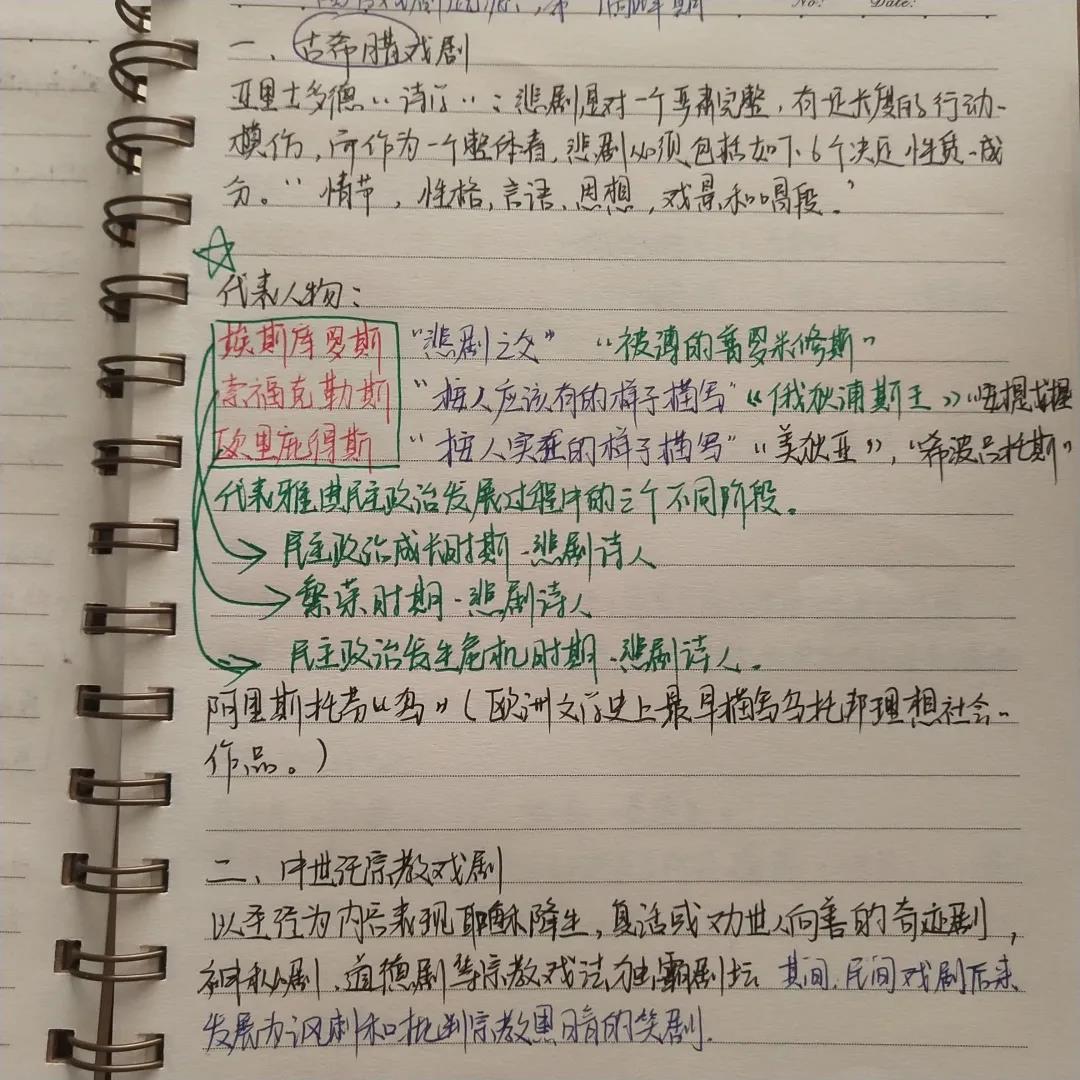 No: Date:
一、古希腊戏剧
亚里士多德"诗学":悲剧是对一个严肃完整,有一定长度的行动
模仿,而作为一个整体看,悲剧必须包括如下6个决定性质成
分。"情节,性格,言语、思想,戏景和唱段。"
代表人物:
埃斯库罗斯 "悲剧之父" "被缚的普罗米修斯"
索福克勒斯 "按人应该有的样子描写"《俄狄浦斯王》
欧里庇得斯 "按人实在的样子描写" "美狄亚","希波吕托斯"
代表雅典民主政治发展过程中的三个不同阶段。
民主政治成长时期 悲剧诗人
繁荣时期 悲剧诗人
民主政治发生危机时期 悲剧诗人。
阿里斯托芬"鸟"(欧洲文学史上最早描写乌托邦理想社会
作品。)
二、中世纪宗教戏剧
以圣经为内容表现耶稣降生,复活或劝世人向善的奇迹剧,
神秘剧、道德剧等宗教戏 独霸剧坛 其间,民间戏剧后来
发展为讽刺和批判宗教黑暗的笑剧.